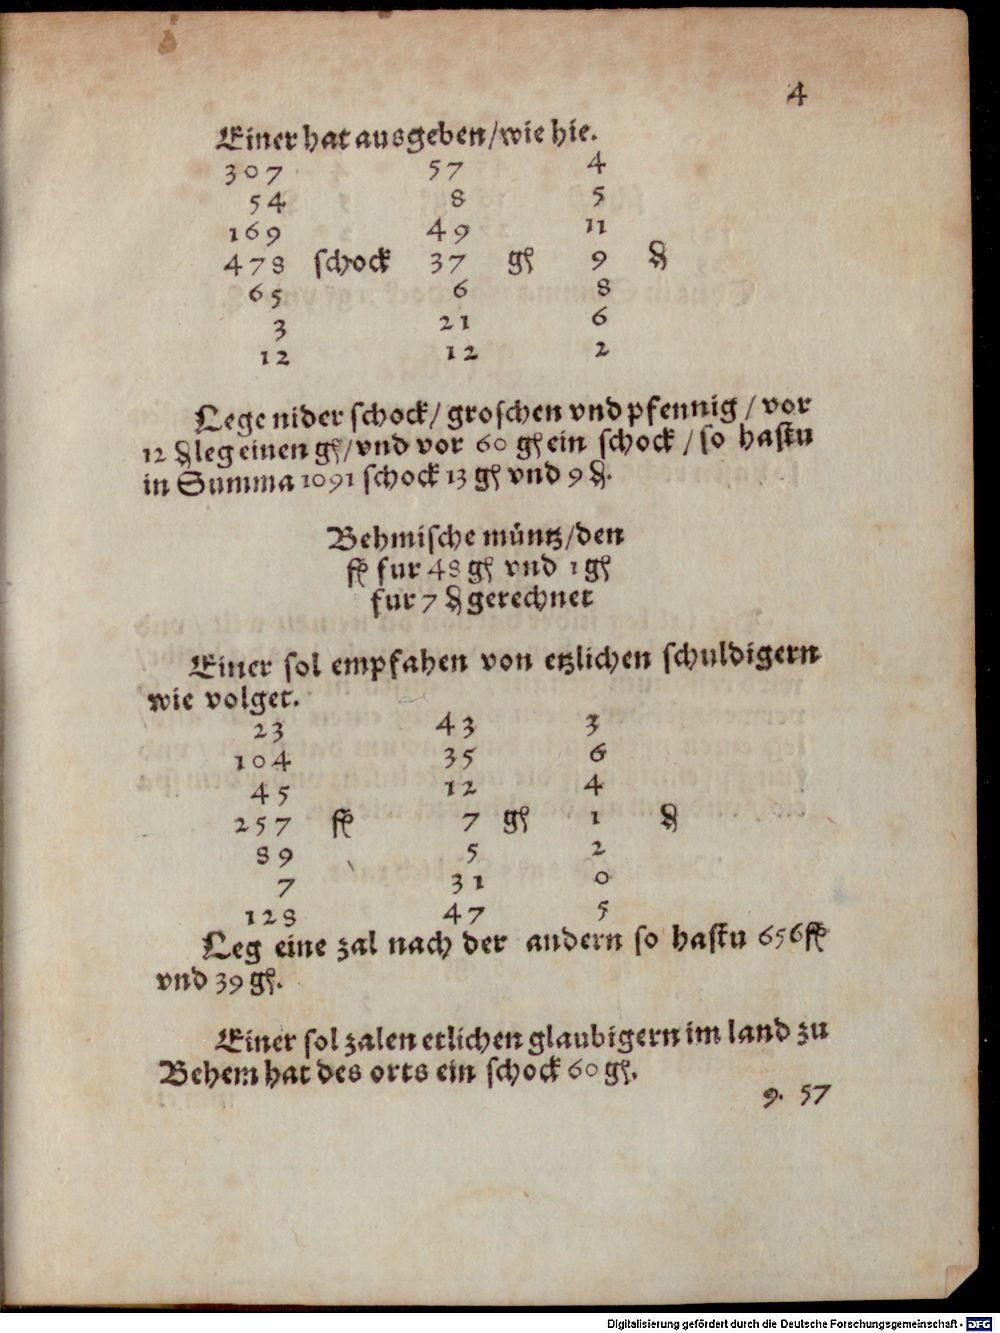 4
Einer hat ausgeben/wie hie.
307 57 4
54 8 5
169 49 11
478 schock 37 gß 9 ₰
65 6 8
3 21 6
12 12 2
Lege nider schock/ groschen vnd pfennig / vor
12 ₰ leg einen gß/vnd vor 60 gß ein schock / so hastu
in Summa 1091 schock 13 gß vnd 9 ₰.
Behmische müntz/den
ſß fur 48 gß vnd 1 gß
fur 7 ₰ gerechnet
Einer sol empfahen von etzlichen schuldigern
wie volget.
23 43 3
104 35 6
45 12 4
257 ſß 7 gß 1 ₰
89 5 2
7 31 0
128 47 5
Leg eine zal nach der andern so hastu 656 ſß
vnd 39 gß.
Einer sol zalen etlichen glaubigern im land zu
Behem hat des orts ein schock 60 gß.
9. 57
Digitalisierung gefördert durch die Deutsche Forschungsgemeinschaft - DFG